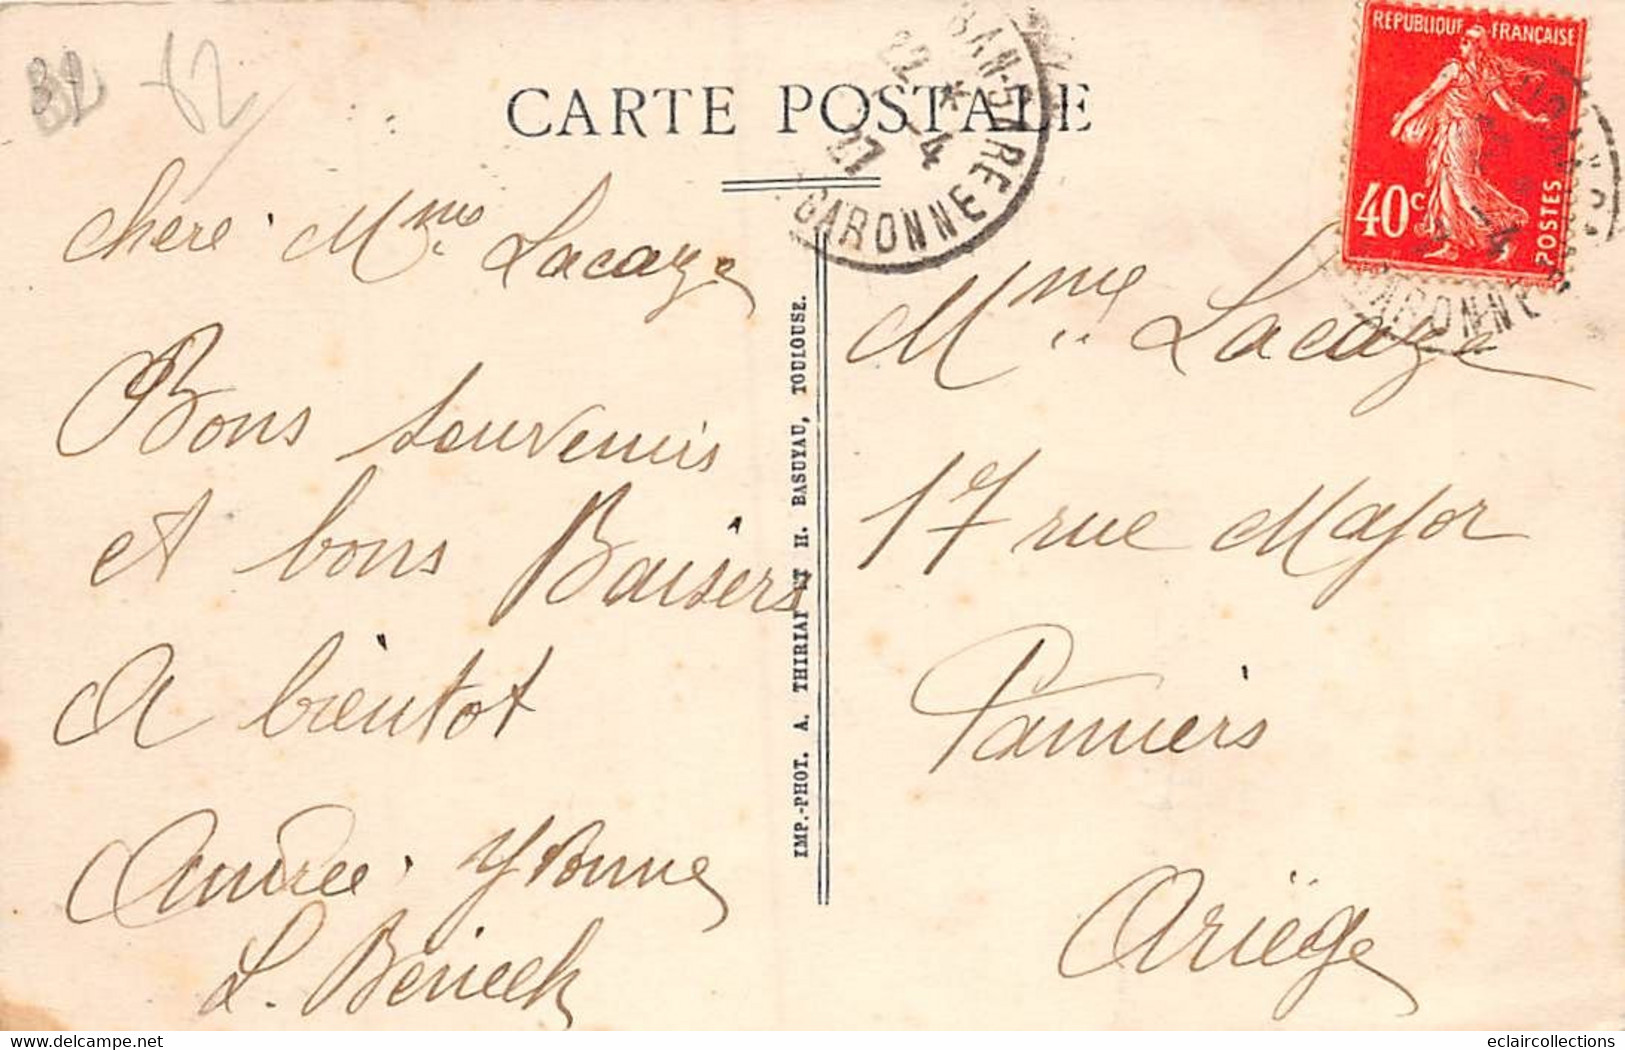 B2 62
CARTE POSTALE
BAN-5 RE
22 * -4
27
GARONNE
REPUBLIQUE FRANÇAISE
40c
POSTES
GARONNE
Chère Mme Lacaze
Bons souvenirs
et bons Baisers
A bientot
Andrée Yvonne
IMP.-PHOT. A. THIRIAT ET H. BASUYAU, TOULOUSE.
Mme Lacaze
17 rue Major
Pamiers
Ariège
eclaircollections